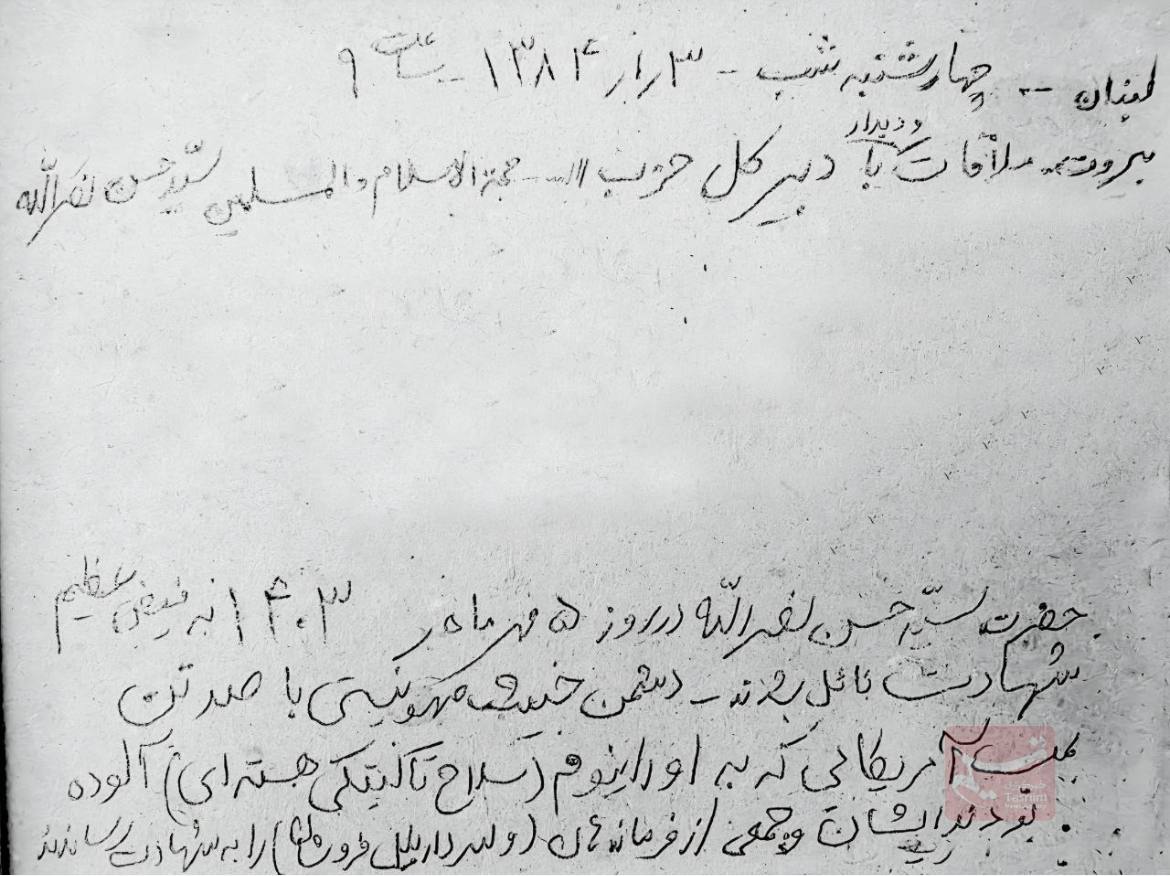 لبنان -- چهارشنبه شب - ۳ر۱ر۱۳۸۴ - ساعت ۹
و دیدار
بیروت - ملاقات با دبیر کل حزب الله - حجة الاسلام والمسلمین سیّد حسن نصرالله
حضرت سیّد حسن نصرالله در روز ۵ مهر ماه ۱۴۰۳ به فیض عظیم
شهادت نائل شدند - دشمن خبیث صهونیستی با صد تن
بمب آمریکایی که به اورانیوم (سلاح تاکتیکی هسته ای) آلوده
بودند ایشان و جمعی از فرماندهان (و سردار نیل فروشان) را به شهادت رساندند
تسنیم
Tasnim